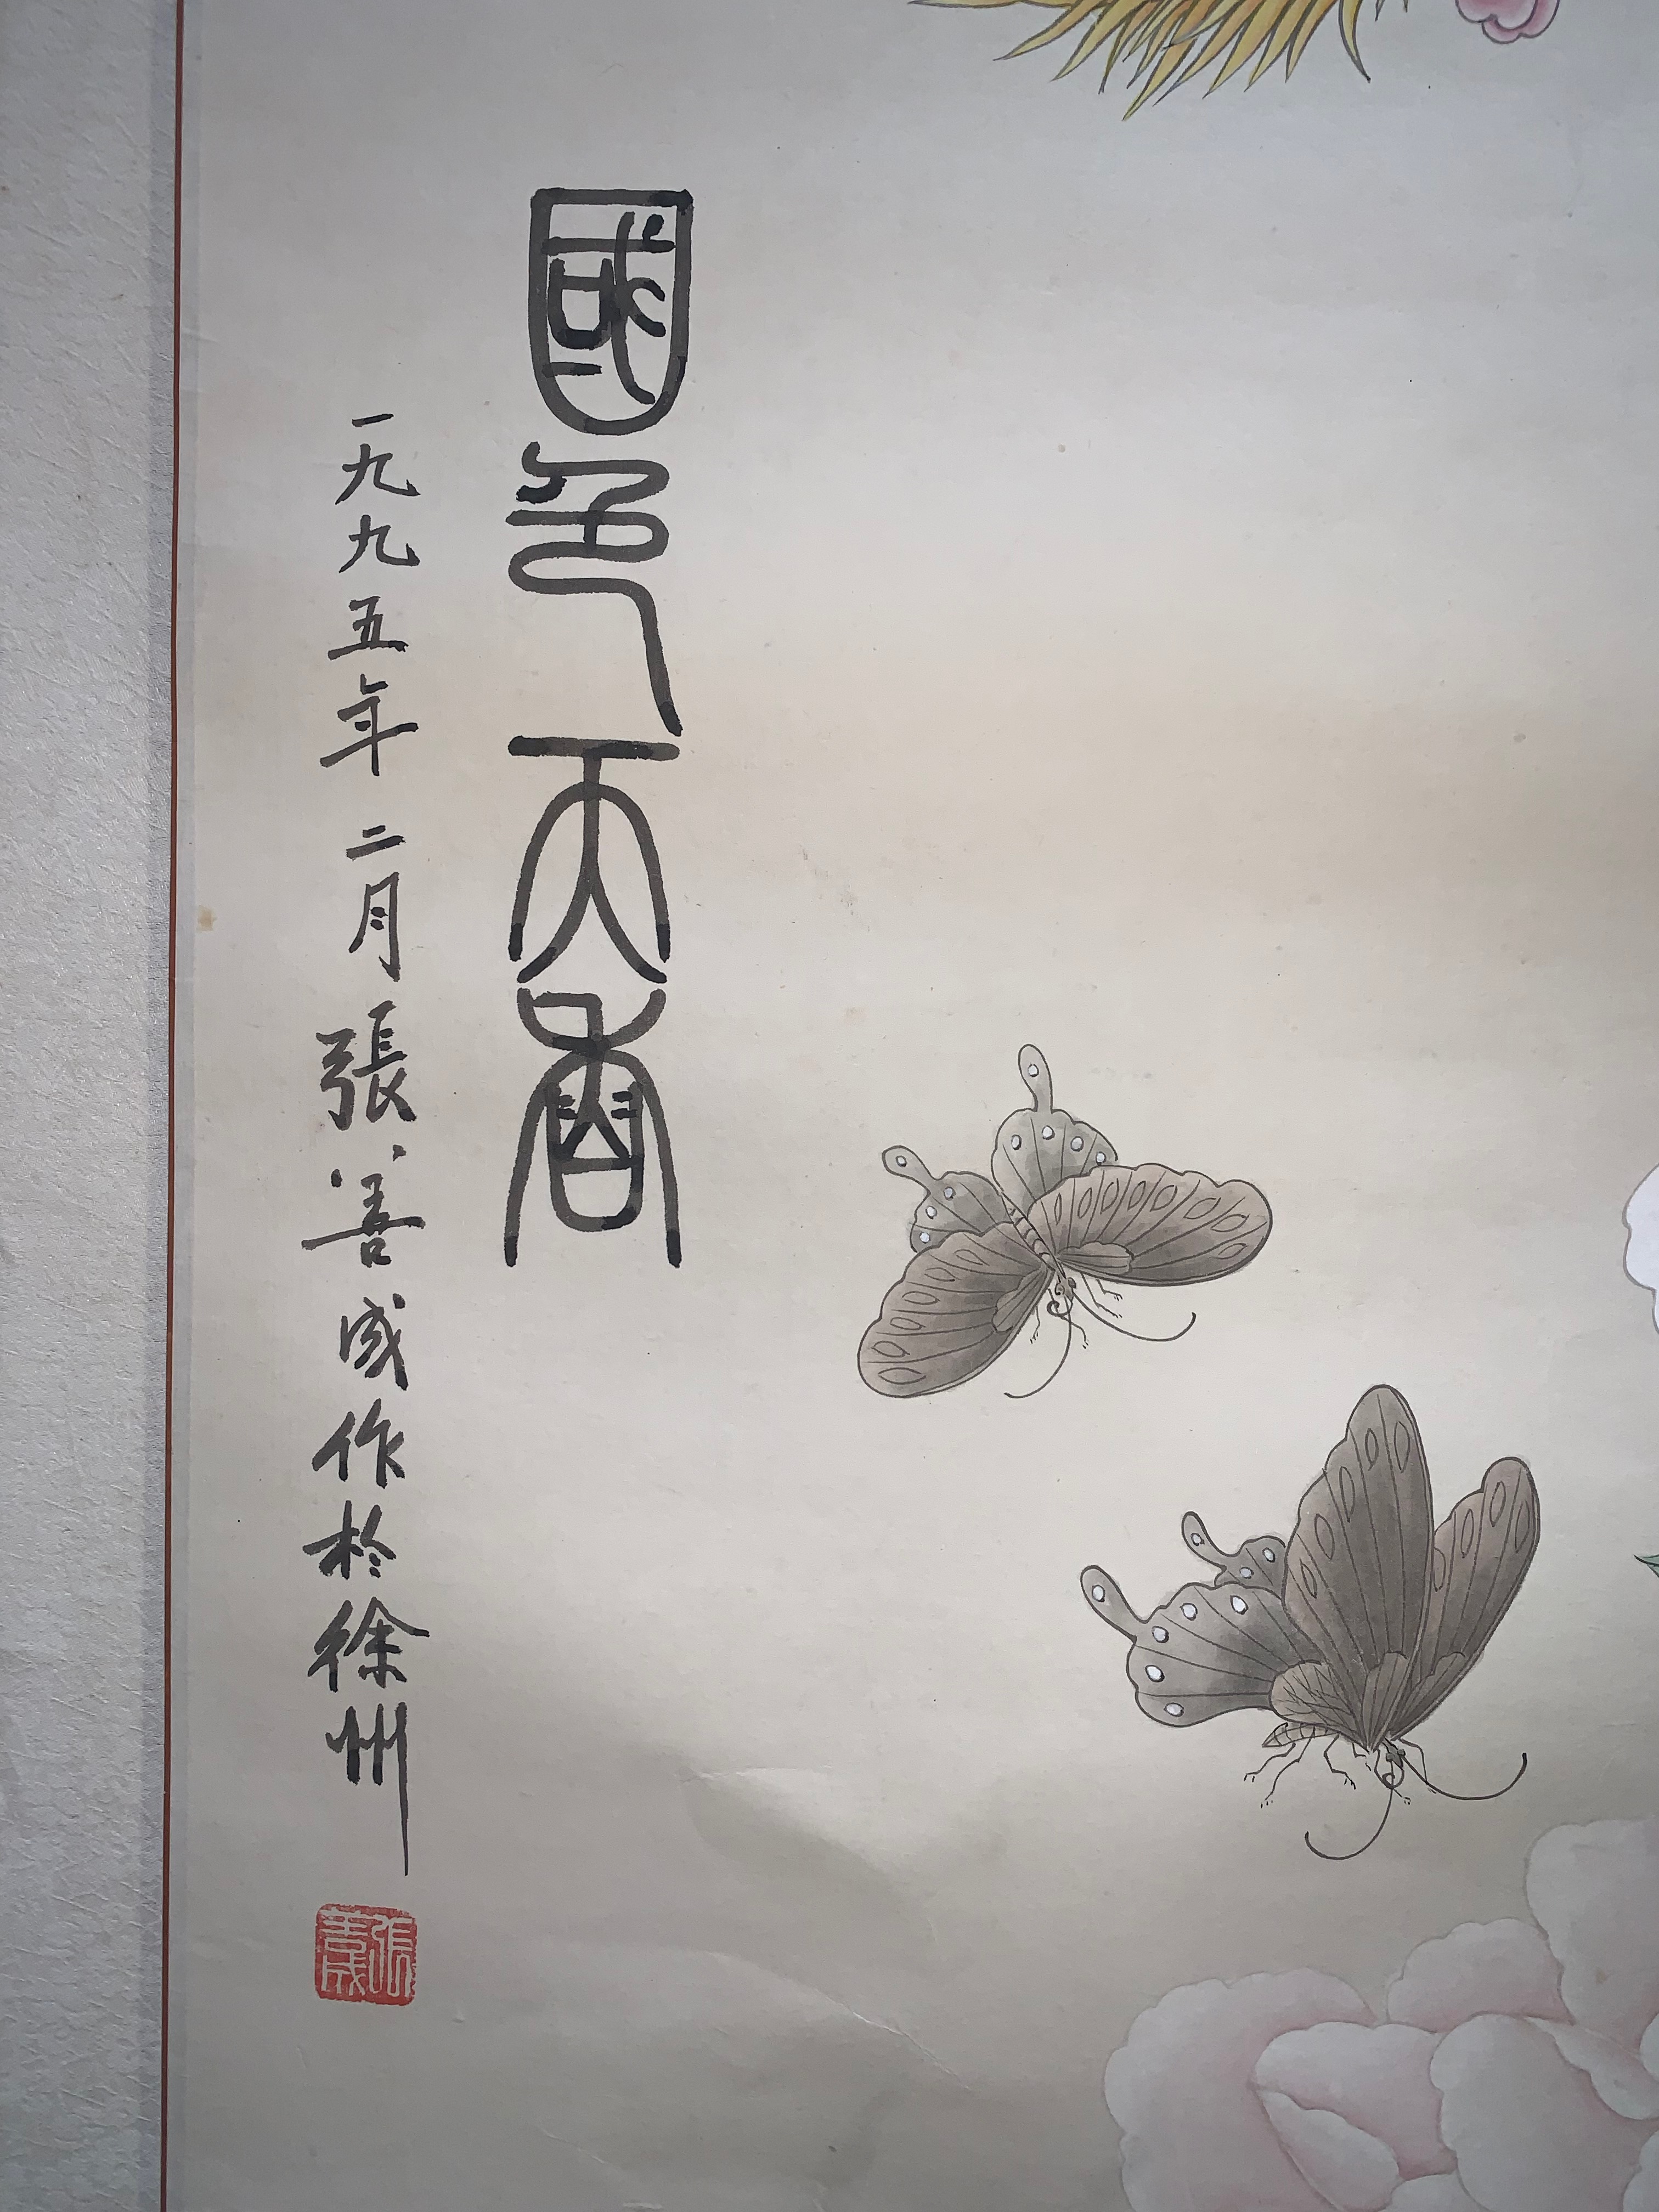 國色天香
一九九五年二月張善成作於徐州
張善成